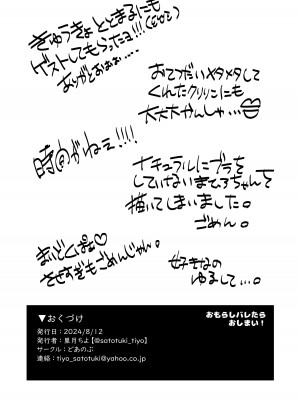 きゅうきょ ととまるにも
ゲストしてもらったヨ!!!
ありがとおぉぉ…
おてつだいメタメタして
くれたクリリこにも
大大大かんしゃ…
時間がねェ!!!!
ナチュラルにブラを
していないまひろちゃんを
描いてしまいました。
ごめん。
まいどくぱぁ♡
させすぎもごめんじゃん。
好きなの
ゆるして…。
▼おくづけ
発行日：2024/8/12
発行者：里月ちよ【@satotuki_tiyo】
サークル：どあのぶ
連絡：tiyo_satotuki@yahoo.co.jp
おもらしバレたら
おしまい！